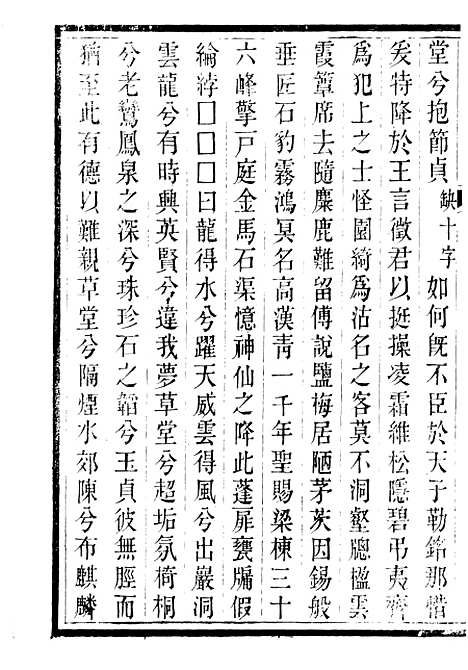 堂兮抱節貞缺十字如何旣不臣於天子勒銘那惜
爰特降於王言徵君以挺操凌霜維松隱碧弔夷齊
爲犯上之士怪園綺爲沽名之客莫不洞壑牕楹雲
霞簟席去隨麋鹿難留傅說鹽梅居陋茅茨因錫般
垂匠石豹霧鴻冥名高漢青一千年聖賜梁棟三十
六峰擎戸庭金馬石渠憶神仙之降此蓬扉甕牖假
綸綍□□□曰龍得水兮躍天威雲得風兮出巖洞
雲龍兮有時興英賢兮違我夢草堂兮超垢氛椅桐
兮老鸞鳳泉之深兮珠珍石之韞兮玉貞彼無脛而
猶至此有德以難親草堂兮隔煙水郊陳兮布麒麟